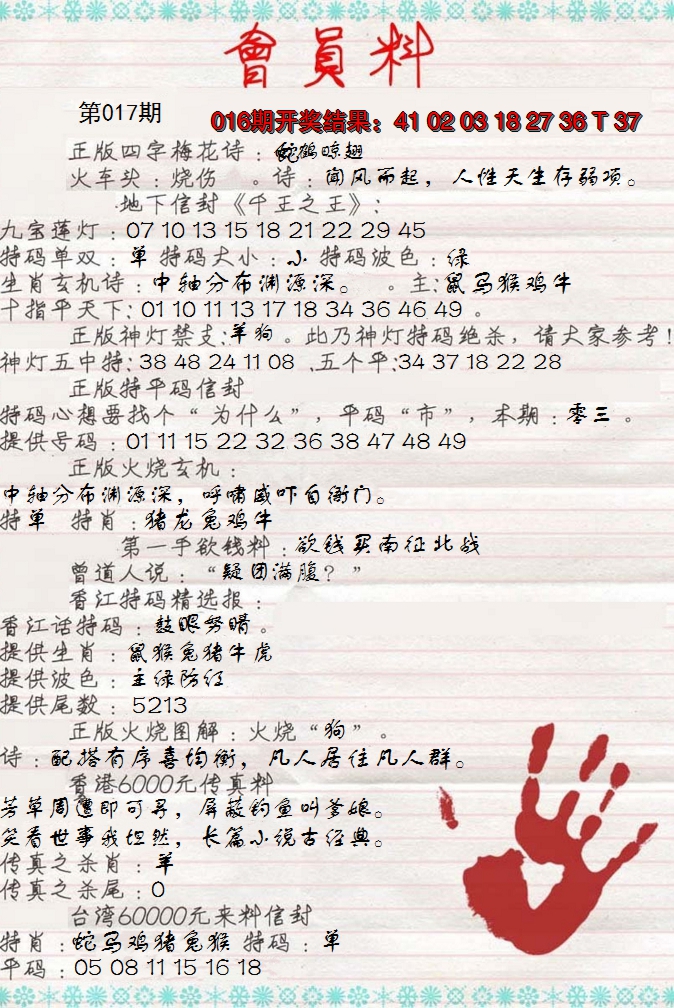 會員料
第017期
016期开奖结果：41 02 03 18 27 36 T 37
正版四字梅花诗：蛇鹤晾翅
火车头：烧伤 。诗：闻风而起，人性天生存弱项。
地下信封《千王之王》:
九宝莲灯：07 10 13 15 18 21 22 29 45
特码单双：单 特码大小：小 特码波色：绿
生肖玄机诗：中轴分布渊源深。 。主:鼠马猴鸡牛
十指平天下: 01 10 11 13 17 18 34 36 46 49 。
正版神灯禁支:羊狗 。此乃神灯特码绝杀，请大家参考!
神灯五中特: 38 48 24 11 08 .五个平:34 37 18 22 28
正版特平码信封
特码心想要找个“为什么”，平码“市”，本期：零三 。
提供号码：01 11 15 22 32 36 38 47 48 49
正版火烧玄机：
中轴分布渊源深，呼啸威吓自衙门。
特单 特肖：猪龙兔鸡牛
第一手欲钱料：欲钱买南征北战
曾道人说：“疑团满腹？”
香江特码精选报：
香江话特码：鼓眼努睛。
提供生肖：鼠猴兔猪牛虎
提供波色：主绿防红
提供尾数：5213
正版火烧图解：火烧“狗”。
诗：配搭有序喜均衡，凡人居住凡人群。
香港6000元传真料
芳草周遭即可寻，屏蔽钓鱼叫爹娘。
笑看世事我坦然，长篇小说古经典。
传真之杀肖：羊
传真之杀尾：0
台湾60000元来料信封
特肖：蛇马鸡猪兔猴 特码：单
平码：05 08 11 15 16 18